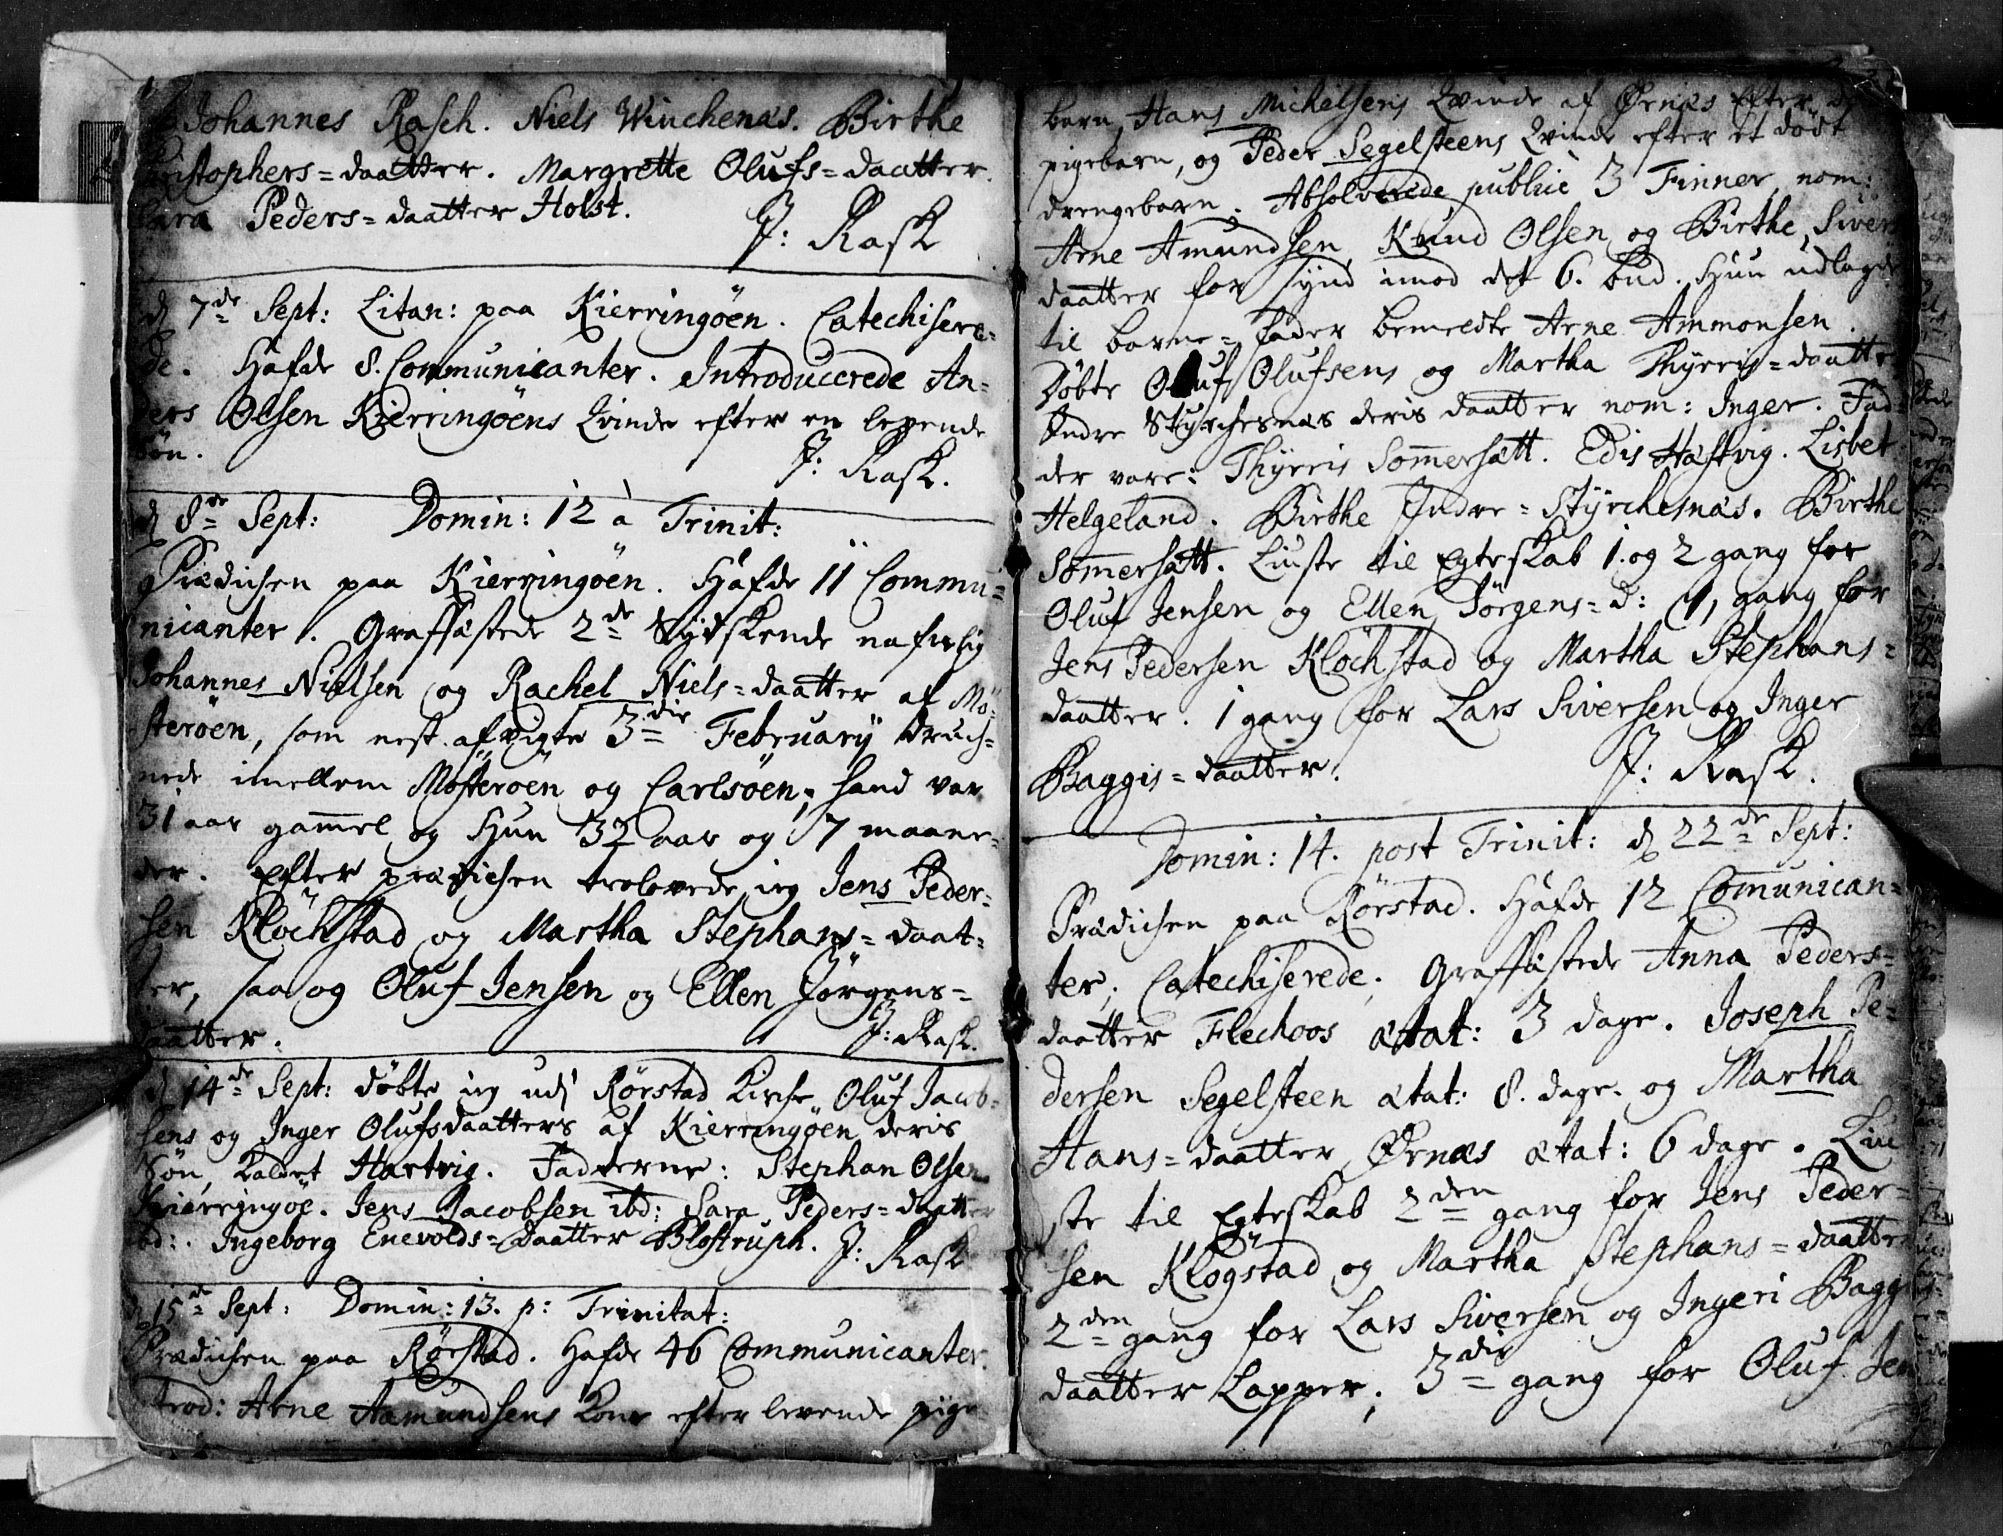 Johannes Rasch. Niels Winchenæs. Birthe
Christophers=daatter. Margrette Olufs=daatter.
Sara Peders=daatter Holst.
J: Rask
d 7de Sept: Litan: paa Kierringöen. Catechisere=
de. Hafde 8. Communicanter. Introducerede An=
ders Olsen Kierringöens Qvinde efter en levende
Sön.
J: Rask.
d 8de Sept: Domin: 12 à Trinit:
Prædichen paa Kierringöen. Hafde 11 Commu=
nicanter. Graffæstede 2de Sydskende nafnlig
Johannes Nielsen og Rachel Niels=daatter af Mö=
steröen, som nest afvigte 3die February druch=
nede imellem Mösteröen og Carlsöen; hand var
31 aar gamel og Hun 32 aar og 7 maane=
der. Efter prædichen trolovede ieg Jens Peder=
sen Klöchstad og Martha Stephans=daat=
ter, saa og Oluf Jensen og Ellen Jörgens=
daatter.
J: Rask.
d 14de Sept: döbte ieg udi Rörstad Kirche Oluf Jacob=
sens og Inger Olufsdaatters af Kierringöen deris
Sön, kaldet Hartvig. Fadderne: Stephan Olsen
Kierringöe. Jens Jacobsen ibd: Sara Peders=daatter
ibd: Ingeborg Enevolds=daatter Blostruph.
J: Rask
d 15de Sept: Domin: 13. p: Trinitat:
Prædichen paa Rörstad. Hafde 46 Communicanter.
Introd: Arne Aamundsens Kone efter levende pige
barn, Hans Michelsens Qvinde af Örnæs efter
pigebarn, og Peder Segelsteens Qvinde efter et dödt
drengebarn. Absolverede publice 3 Finner nom:
Arne Amundsen, Knud Olsen og Birthe Sivers
daatter for synd imod det 6. bud. Hun udlagde
til barne=fader bemeldte Arne Ammonsen.
Döbte Oluf Olufsens og Martha Thyrris=daatter
Indre Styrchesnæs deris daatter nom: Inger. Fad=
der vare: Thyrris Somersætt. Edis Hæstvig. Lisbet
Helgeland. Birthe Indre=Styrchesnæs. Birthe
Somersætt. Liuste til Egteskab 1. og 2 gang for
Oluf Jensen og Ellen Jörgens=d: 1, gang for
Jens Pedersen Klöchstad og Martha Stephans=
daatter. 1 gang for Lars Siversen og Inger
Baggis=daatter.
J: Rask.
Domin: 14. post Trinit: d 22de Sept:
Prædichen paa Rörstad. Hafde 12 Comunican=
ter. Catechiserede. Graffæstede Anna Peders=
daatter Flechoos ætat: 3 dage. Joseph Pe=
dersen Segelsteen ætat: 8. dage. og Martha
Hans=daatter Örnæs ætat: 6 dage. Liu
ste til Egteskab 2den gang for Jens Peder=
sen Klögstad og Martha Stephans=daatter
2den gang for Lars Siversen og Ingeri Bagg
daatter Lapper; 3die gang for Oluf Jen